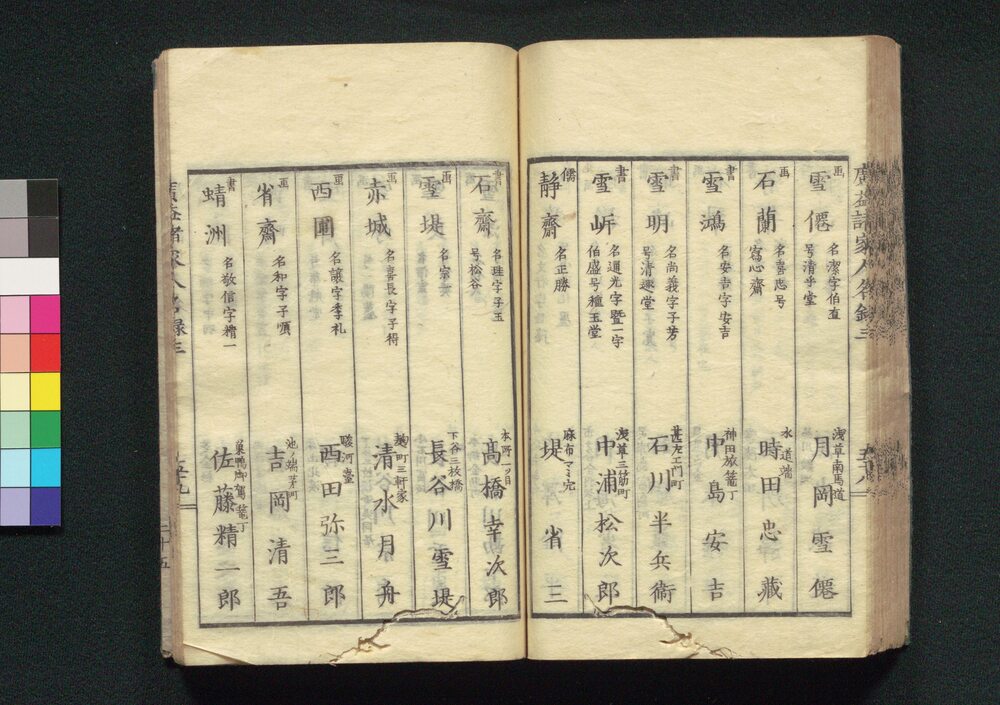 廣益諸家人名録三
画 雪僊 名潔字伯直 号清乎堂 浅草南馬道 月岡雪僊
画 石蘭 名喜忠号 寫心齋 水道端 時田忠藏
書 雪鴻 名安吉字安吉 神田旅篭丁 中島安吉
画 雪明 名尚義字子芳 号清趣堂 甚左エ門町 石川半兵衞
書 雪岍 名通光字暨一字 伯盛号種玉堂 浅草三筋町 中浦松次郎
儒 静齋 名正勝 麻布マミ穴 堤省三
書 石齋 名珪字子玉 号松谷 本所一ツ目 髙橋幸次郎
画 雪堤 名宗一 下谷三枚橋 長谷川雪堤
画 赤城 名喜長字子得 麹町三軒家 清水月舟
画 西圃 名讓字季礼 駿河臺 西田弥三郎
画 省齋 名和字子順 池ノ端茅町 吉岡清吾
書 蜻洲 名敬信字精一 巣鴨御駕篭丁 佐藤精一郎
廣益諸家人名録三
五十九